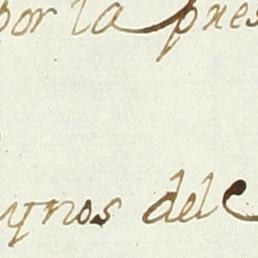 por la pres
ynos del